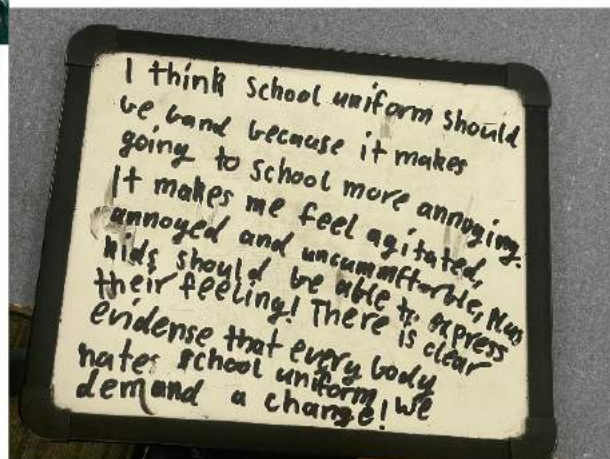 I think School uniform should
be band because it makes
going to School more annoying.
It makes me feel agitated,
annoyed and uncummftorble, Plus
kids should be able to express
their feeling! There is clear
evidense that every body
hates school uniform, we
demand a change!